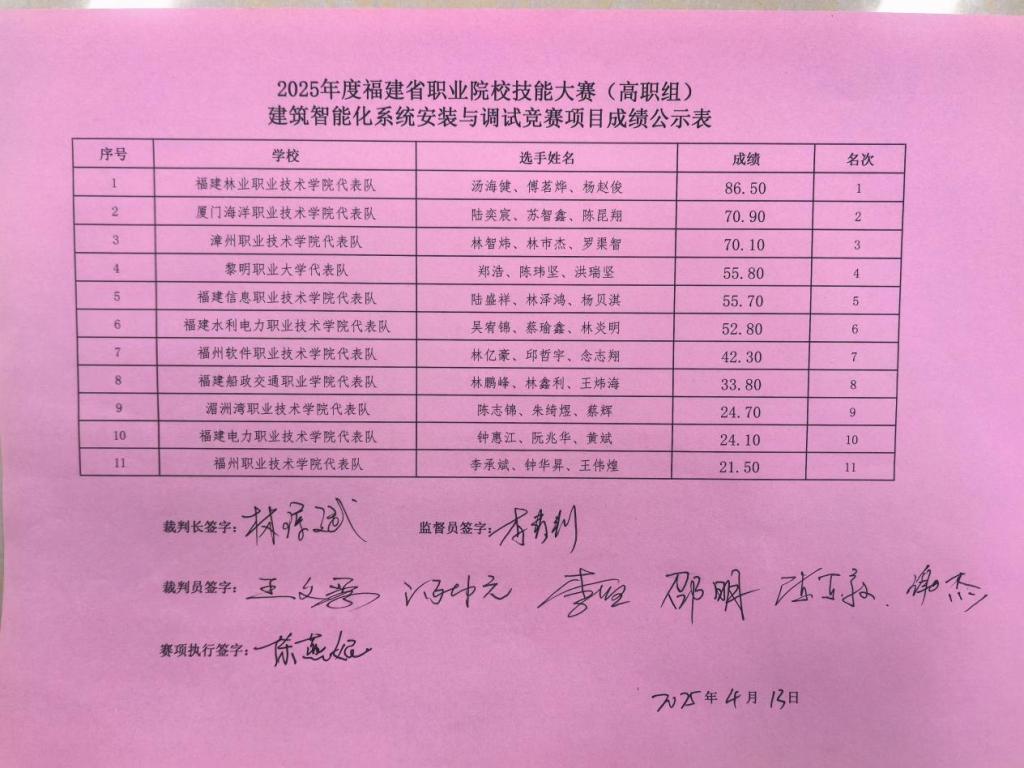 2025年度福建省职业院校技能大赛（高职组）
建筑智能化系统安装与调试竞赛项目成绩公示表
序号 学校 选手姓名 成绩 名次
1 福建林业职业技术学院代表队 汤海健、傅茗烨、杨赵俊 86.50 1
2 厦门海洋职业技术学院代表队 陆奕宸、苏智鑫、陈昆翔 70.90 2
3 漳州职业技术学院代表队 林智炜、林市杰、罗渠智 70.10 3
4 黎明职业大学代表队 郑浩、陈玮坚、洪瑞坚 55.80 4
5 福建信息职业技术学院代表队 陆盛祥、林泽鸿、杨贝淇 55.70 5
6 福建水利电力职业技术学院代表队 吴宥锦、蔡瑜鑫、林炎明 52.80 6
7 福州软件职业技术学院代表队 林亿豪、邱哲宇、念志翔 42.30 7
8 福建船政交通职业学院代表队 林鹏峰、林鑫利、王炜海 33.80 8
9 湄洲湾职业技术学院代表队 陈志锦、朱绮煜、蔡辉 24.70 9
10 福建电力职业技术学院代表队 钟惠江、阮兆华、黄斌 24.10 10
11 福州职业技术学院代表队 李承斌、钟华昇、王伟煌 21.50 11
裁判长签字： 监督员签字：
裁判员签字： 邵明
赛项执行签字：
2025年4月13日